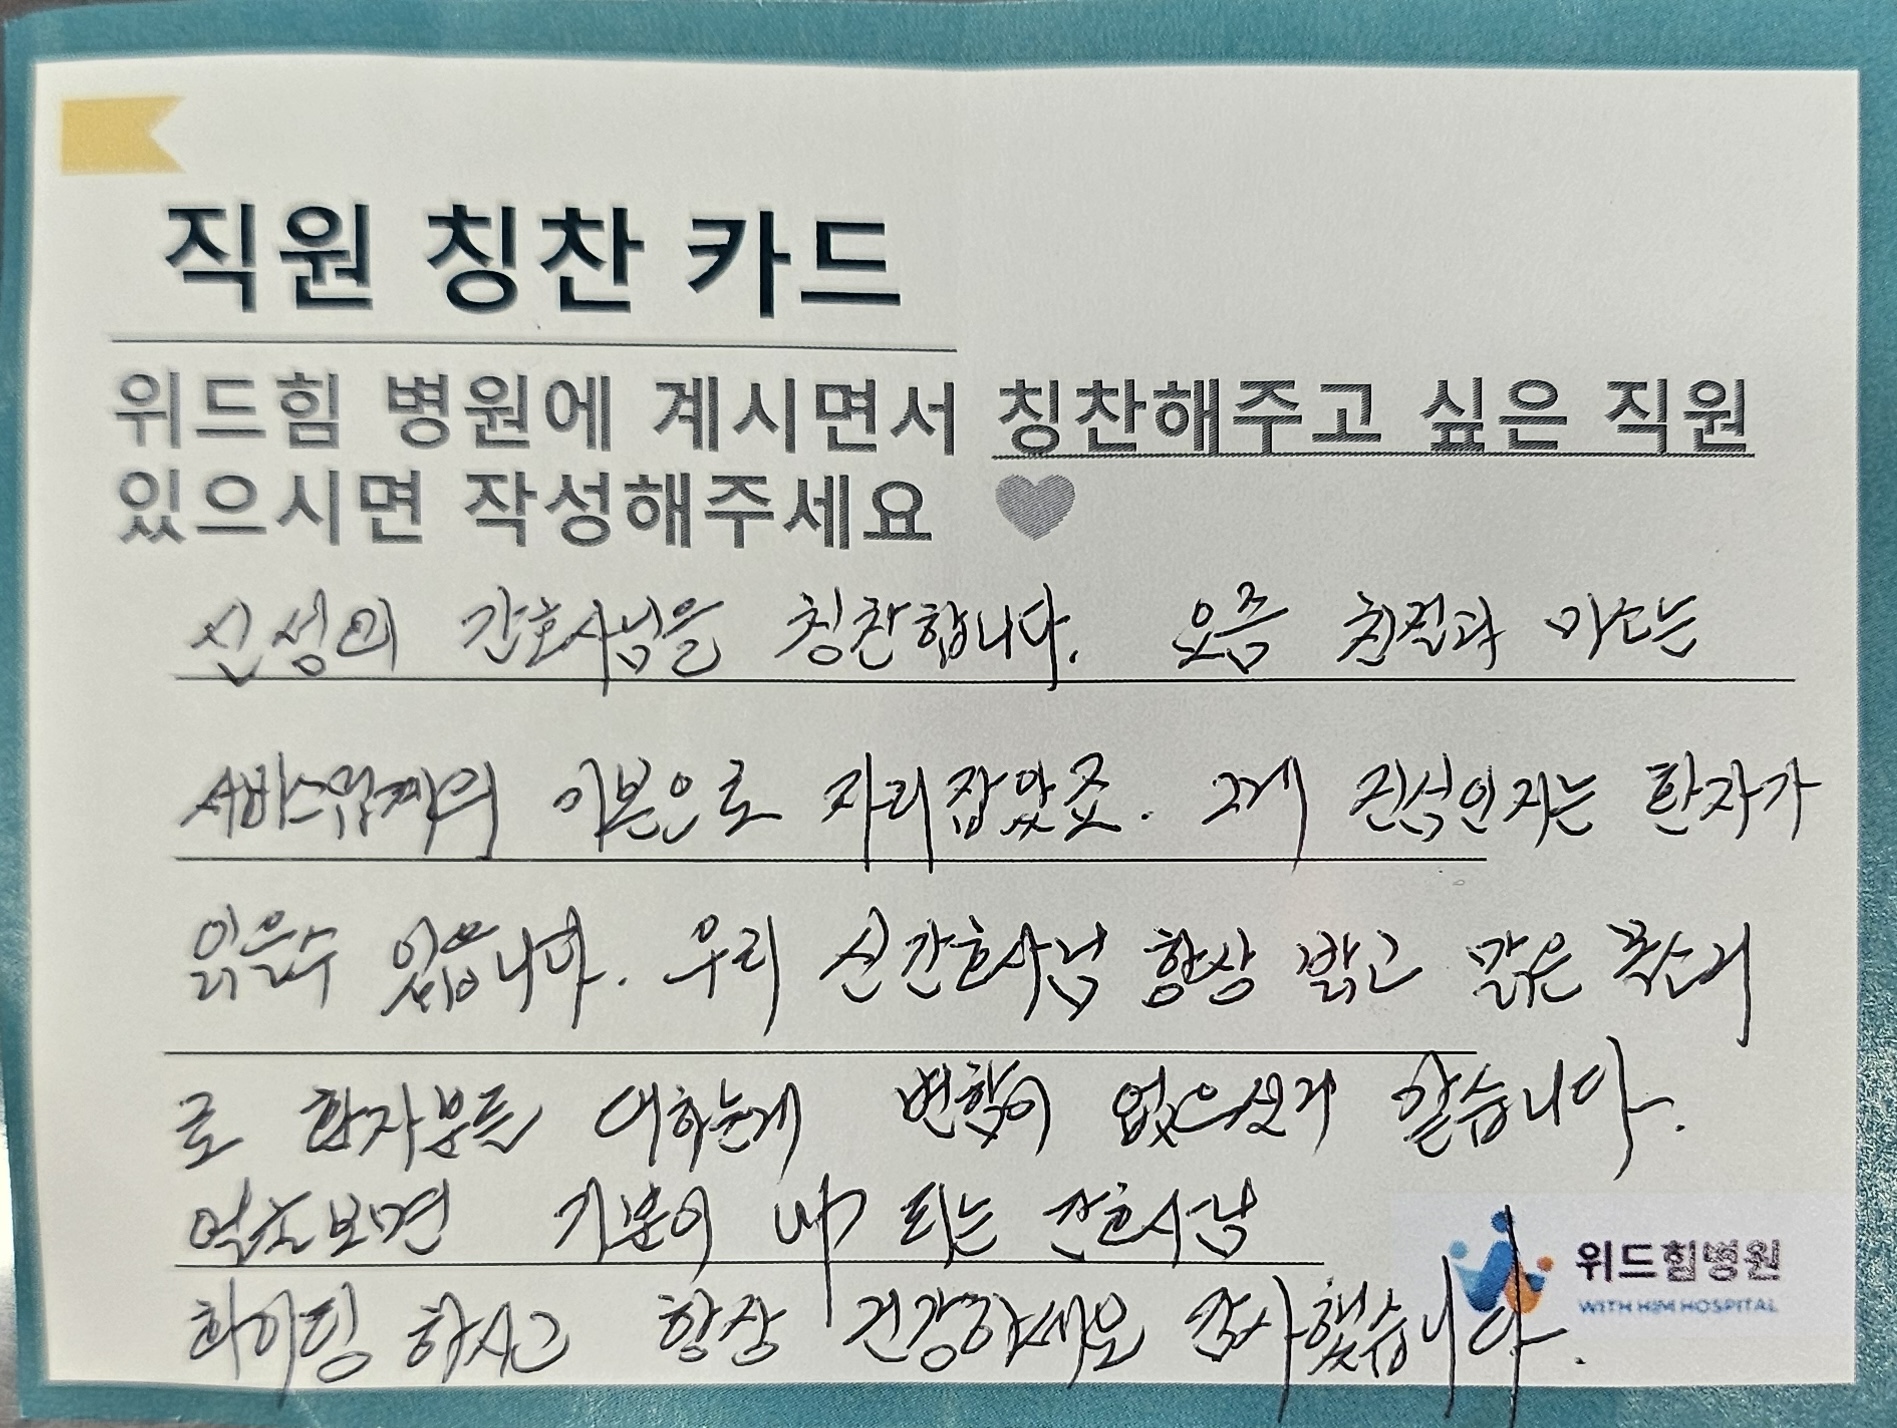 직원 칭찬 카드
위드힘 병원에 계시면서 칭찬해주고 싶은 직원
있으시면 작성해주세요
간호사님을 칭찬합니다. 요즘 친절과 미소는
서비스업계의 기본으로 자리잡았죠. 그게 진심인지는 환자가
읽을수 있습니다. 우리 신간호사님 항상 밝고 맑은 목소리
로 환자분들 대하는게 변함이 없으셔서 알습니다.
얼굴보면 기분이 up 되는 간호사님
화이팅 하시고 항상 건강하세요 감사했습니다.
위드힘병원
WITH HIM HOSPITAL